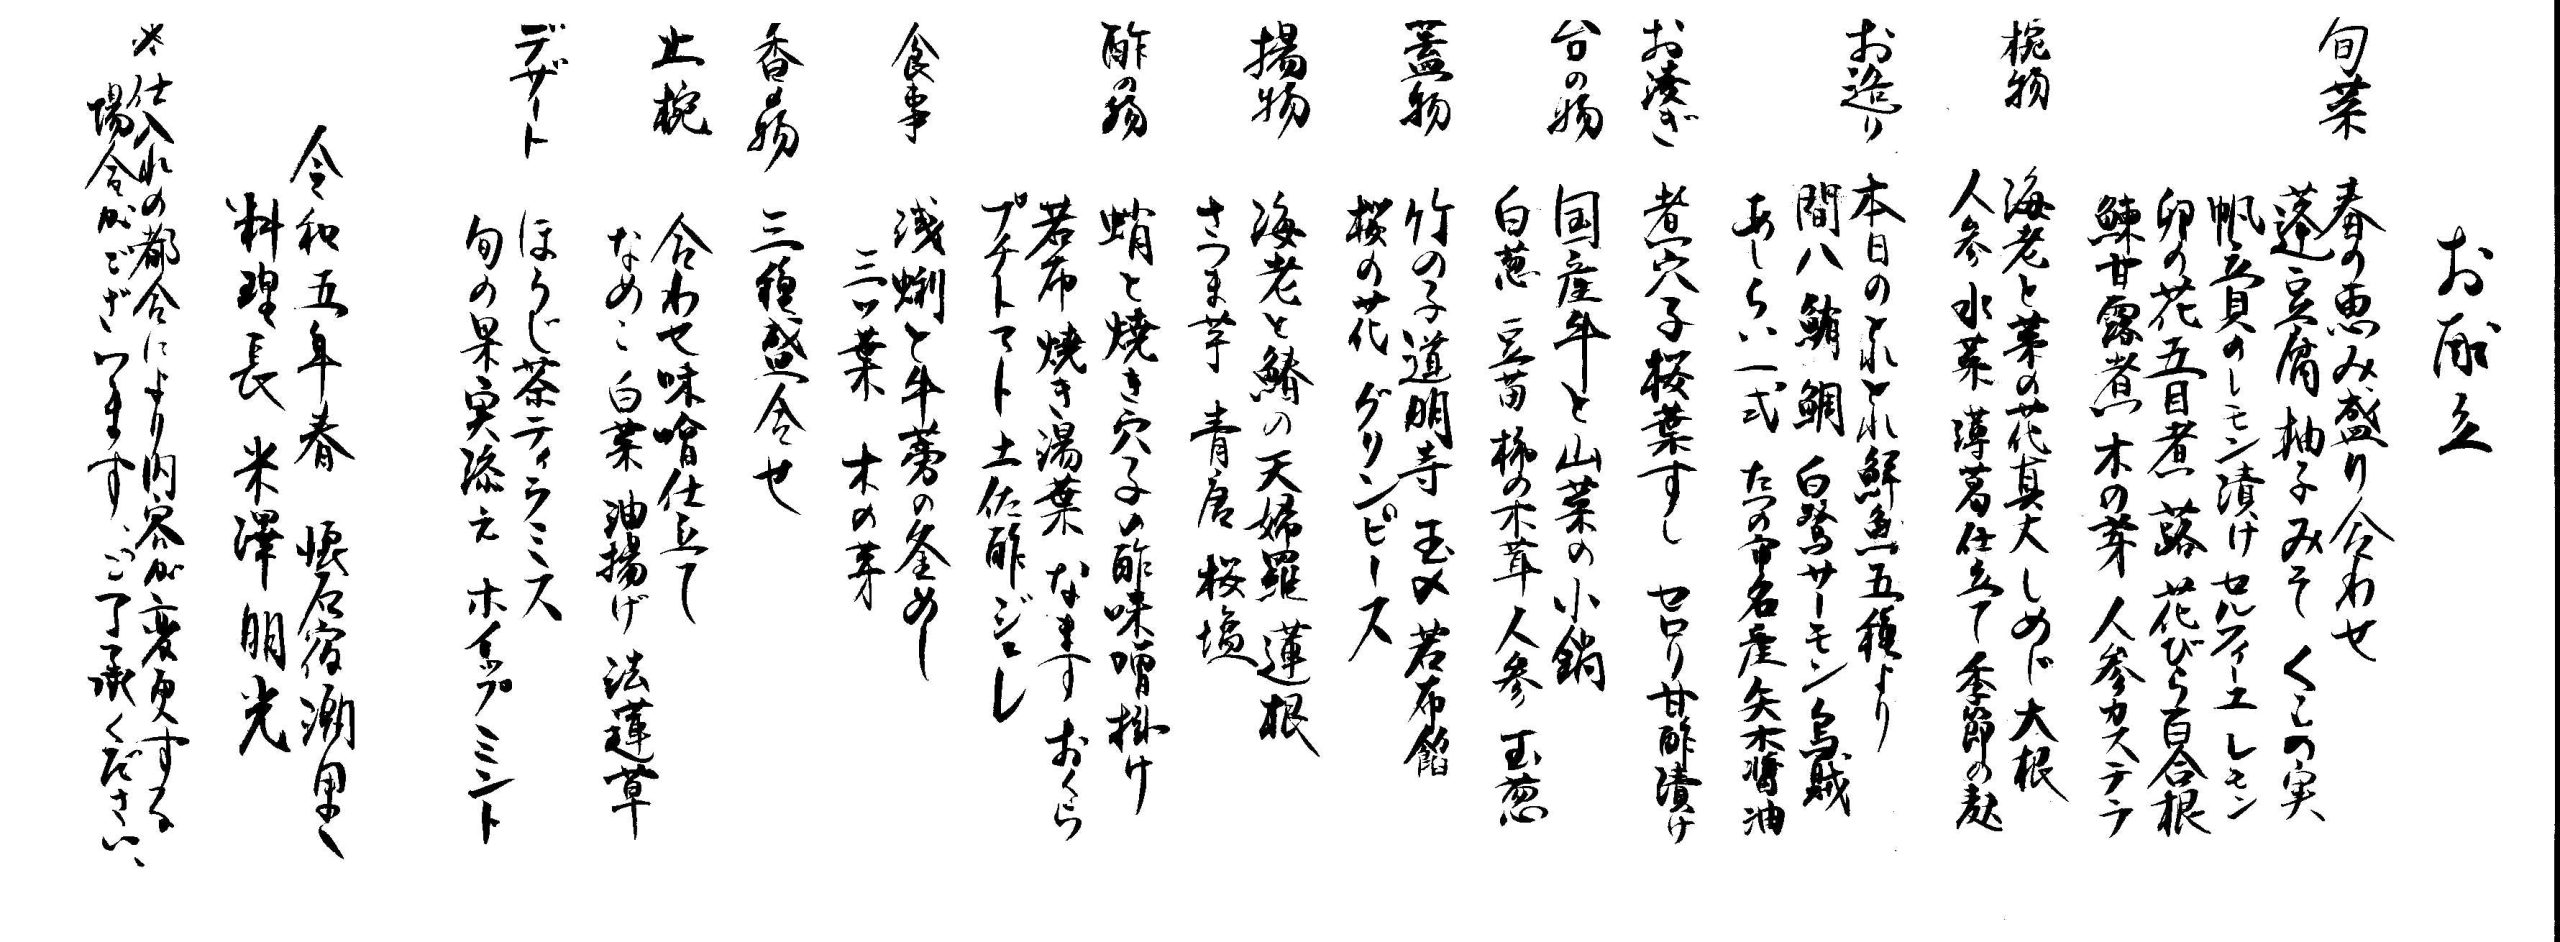 お献立
旬菜
春の恵み盛り合わせ
蓬豆腐 柚子みそ くこの実
帆立貝のレモン漬け セルフィーユ レモン
卯の花五目煮 蕗 花びら百合根
鰊甘露煮 木の芽 人参カステラ
椀物
海老と菜の花真丈 しめじ 大根
人参 水菜 薄葛仕立て 季節の麩
お造り
本日のとれとれ鮮魚五種より
間八 鮪 鯛 白鷺サーモン 烏賊
あしらい一式 たつの市名産矢木醤油
お凌ぎ
煮穴子桜葉すし セロリ甘酢漬け
台の物
国産牛と山菜の小鍋
白葱 豆苗 柳の木茸 人参 玉葱
蓋物
竹の子道明寺 玉〆 若布餡
桜の花 グリンピース
揚物
海老と鰆の天婦羅 蓮根
さつま芋 青唐 桜塩
酢の物
蛸と焼き穴子の酢味噌掛け
若布 焼き湯葉 なます おくら
プチトマト 土佐酢ジュレ
食事
浅蜊と牛蒡の釜めし
三ツ葉 木の芽
香の物
三種盛合せ
止椀
合わせ味噌仕立て
なめこ 白菜 油揚げ 法蓮草
デザート
ほうじ茶ティラミス
旬の果実添え ホイップ ミント
令和五年春 懐石宿 潮里
料理長 米澤明光
※仕入れの都合により内容が変更する
場合がございます、ご了承ください、